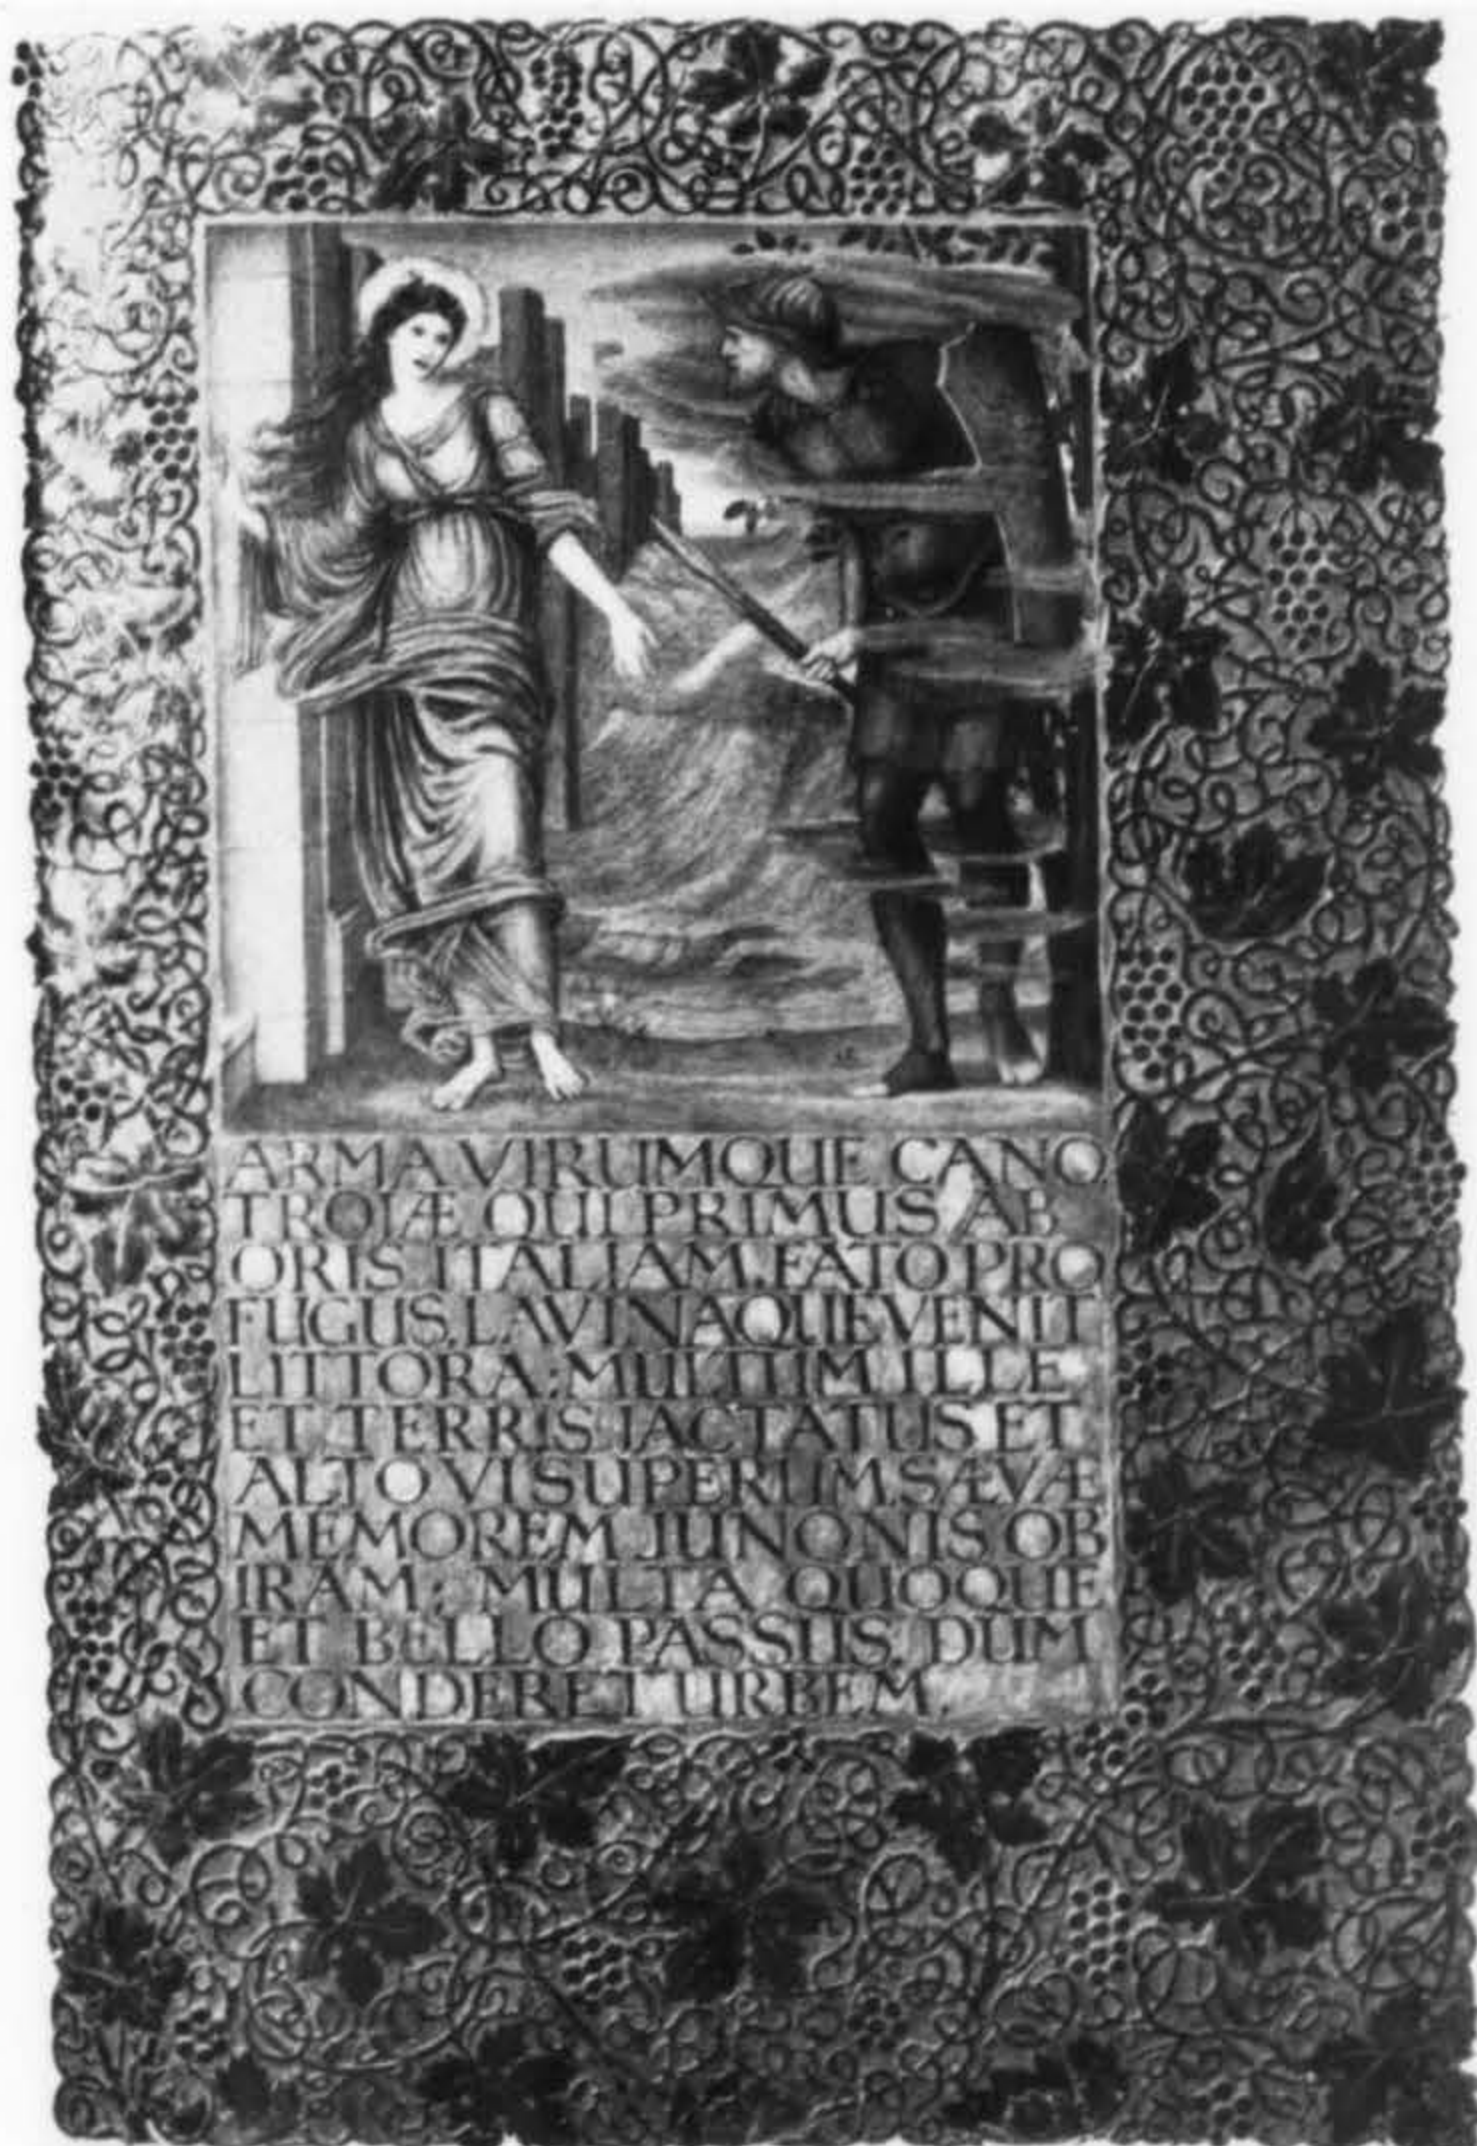 ARMA VIRUMQUE CANO
TROIÆ QUI PRIMUS AB
ORIS ITALIAM, FATO PRO
FUGUS, LAVINAQUE VENIT
LITTORA: MULTUM ILLE
ET TERRIS IACTATUS ET
ALTO VI SUPERUM, SÆVÆ
MEMOREM JUNONIS OB
IRAM; MULTA QUOQUE
ET BELLO PASSUS, DUM
CONDERET URBEM,